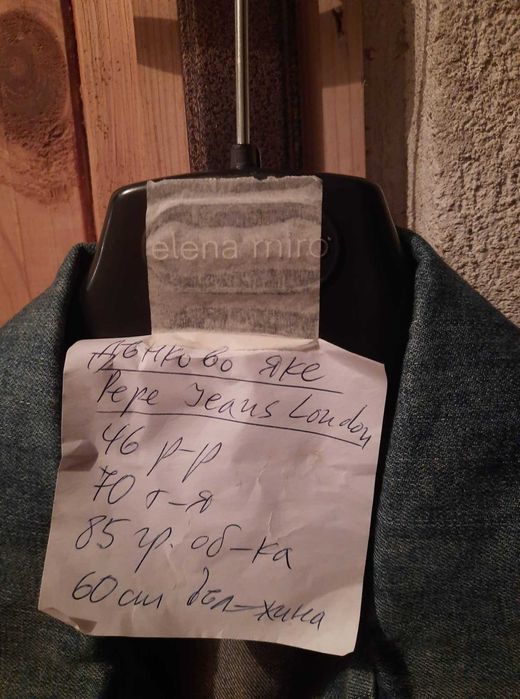 elena mirò
Дънково яке
Pepe Jeans London
46 р-р
70 т-я
85 гр. об-ка
60 см дъл-жина